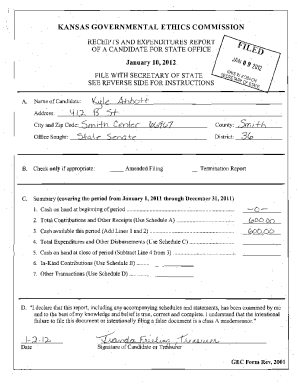 KANSAS GOVERNMENTAL ETHICS COMMISSION
RECEIPTS AND EXPENDITURES REPORT
OF A CANDIDATE FOR STATE OFFICE
January 10, 2012
FILE WITH SECRETARY OF STATE
SEE REVERSE SIDE FOR INSTRUCTIONS
FILED
JAN 09 2012
KRIS W. KOBACH
SECRETARY OF STATE
A. Name of Candidate: Kyle Abbott
Address: 412 B St
City and Zip Code: Smith Center 66967 County: Smith
Office Sought: State Senate District: 36
B. Check only if appropriate: Amended Filing Termination Report
C. Summary (covering the period from January 1, 2011 through December 31, 2011)
1. Cash on hand at beginning of period -0-
2. Total Contributions and Other Receipts (Use Schedule A) 600.00
3. Cash available this period (Add Lines 1 and 2) 600.00
4. Total Expenditures and Other Disbursements (Use Schedule C)
5. Cash on hand at close of period (Subtract Line 4 from 3)
6. In-Kind Contributions (Use Schedule B)
7. Other Transactions (Use Schedule D)
D. "I declare that this report, including any accompanying schedules and statements, has been examined by me
and to the best of my knowledge and belief is true, correct and complete. I understand that the intentional
failure to file this document or intentionally filing a false document is a class A misdemeanor."
1-2-12 Treasurer
Date Signature of Candidate or Treasurer
GEC Form Rev, 2001